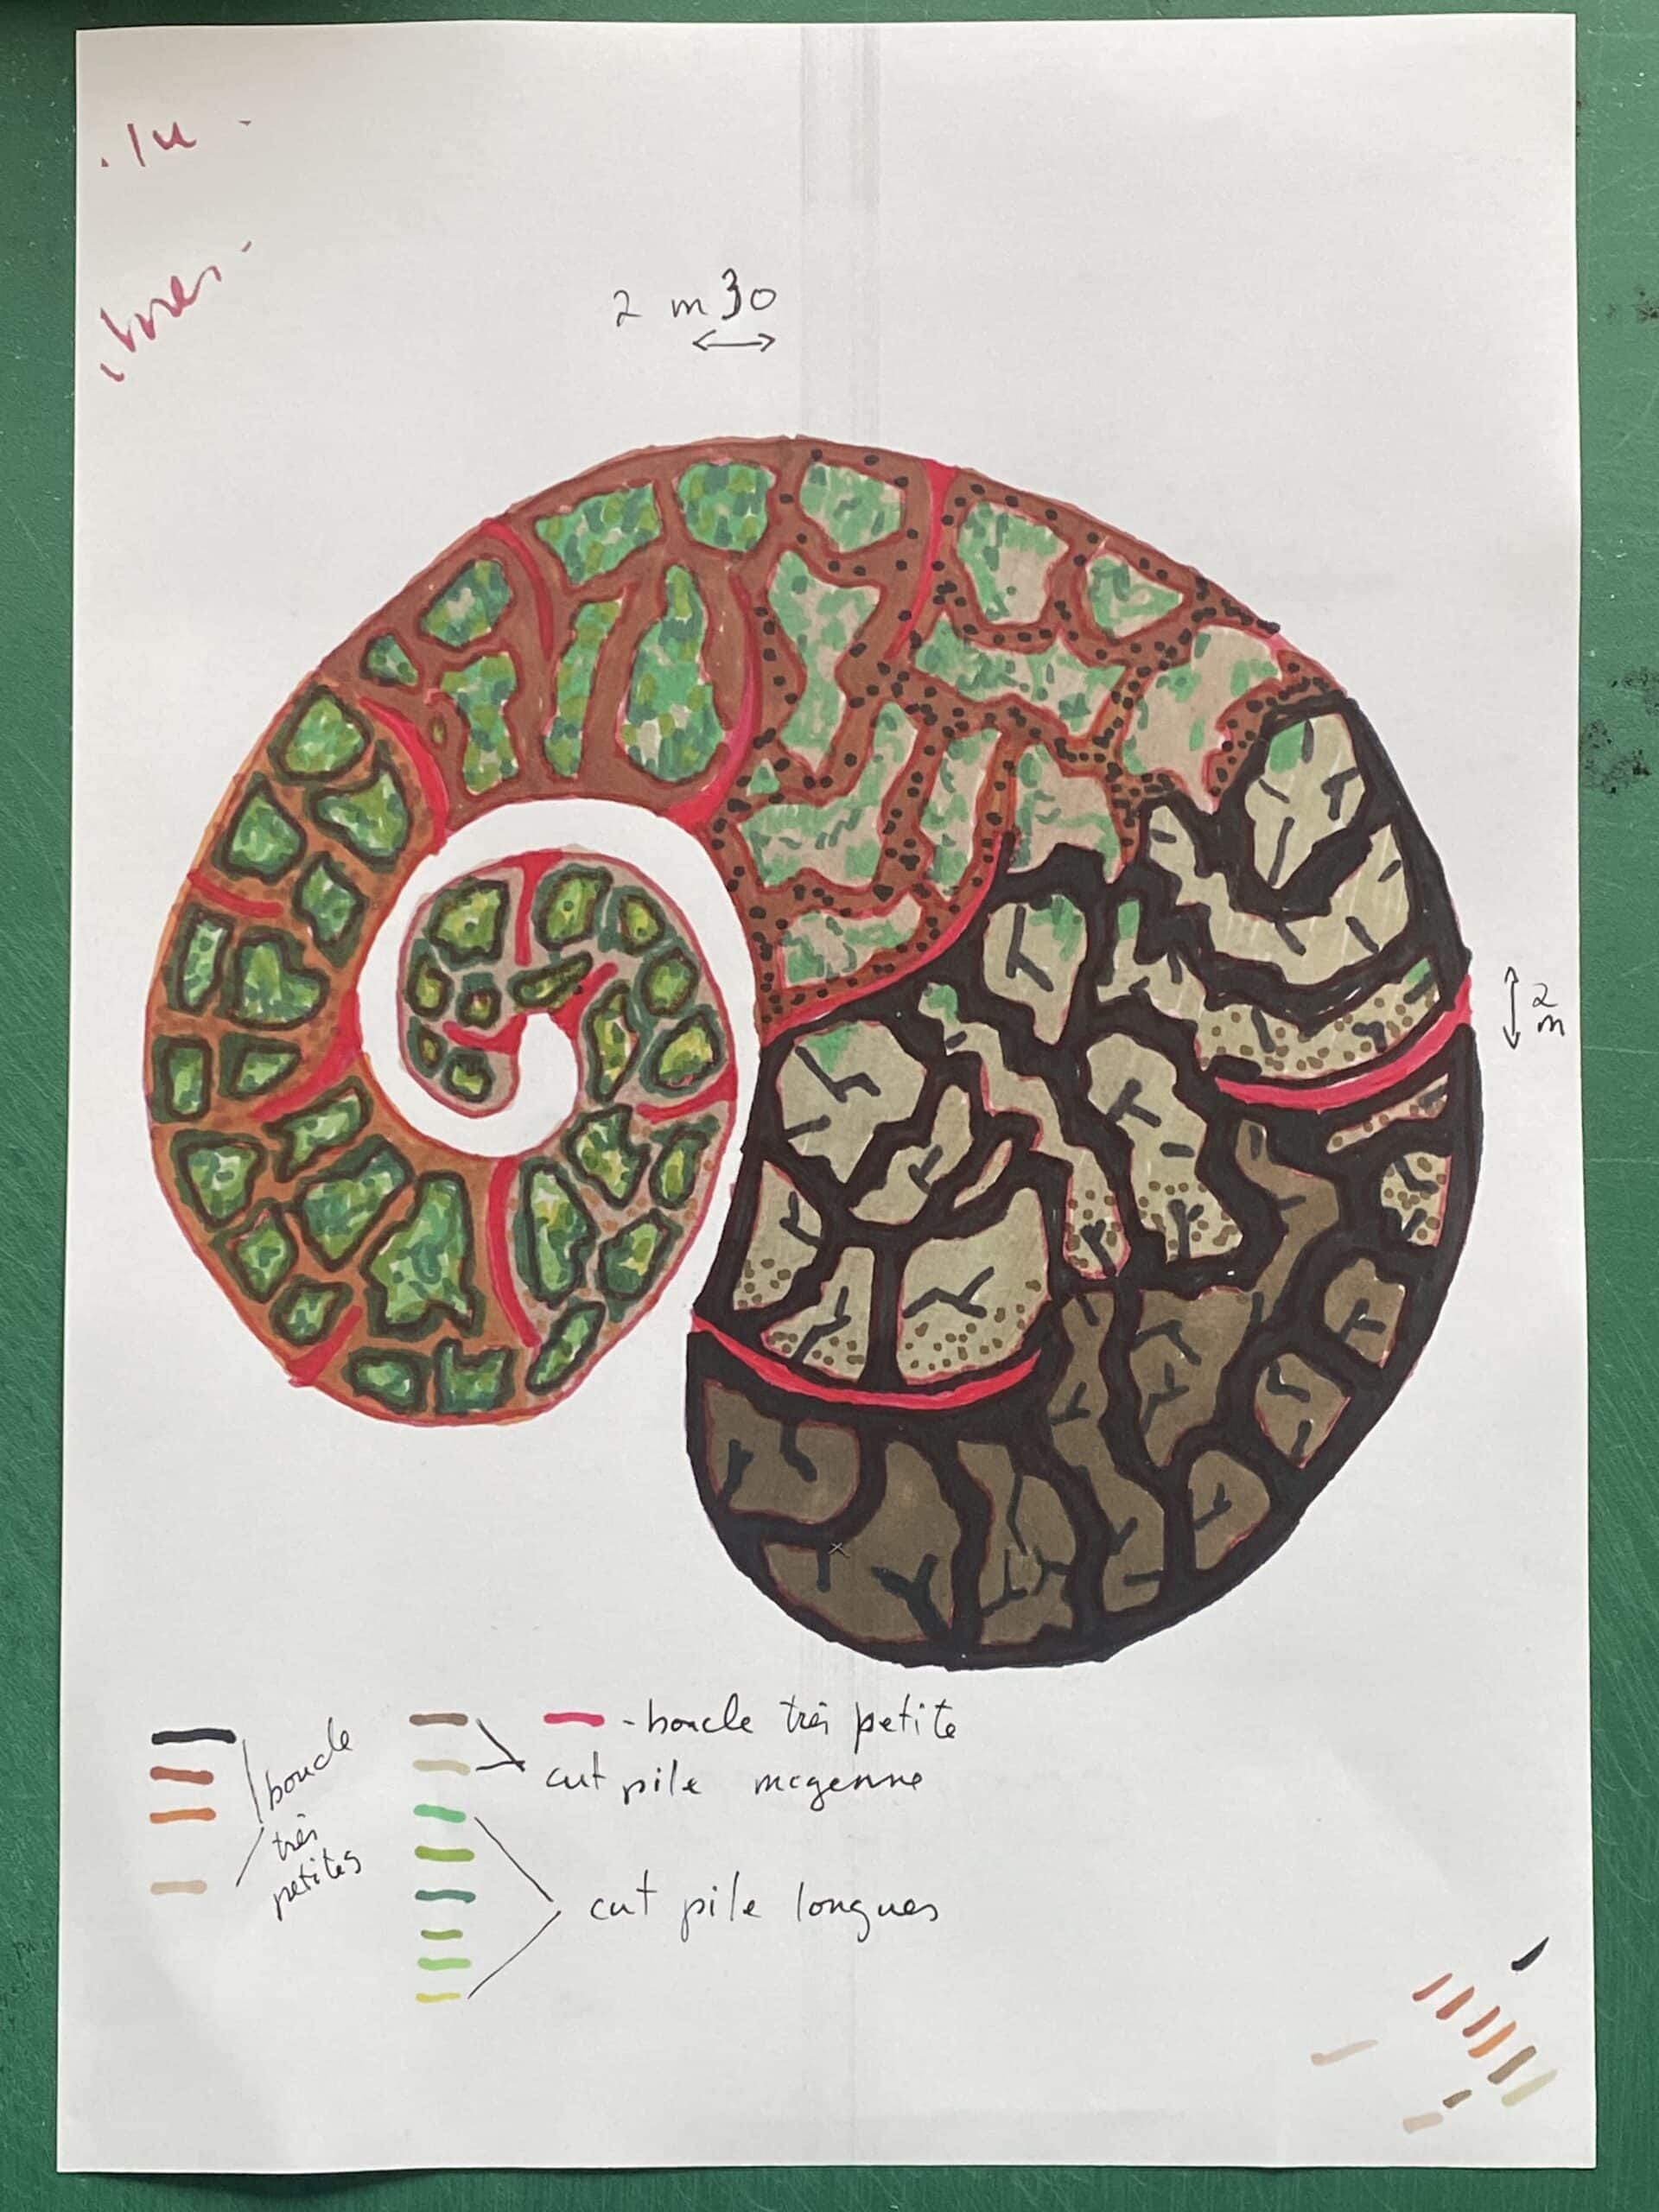 2 m 30
2
m
boucle
très
petites
- boucle très petite
cut pile moyenne
cut pile longues